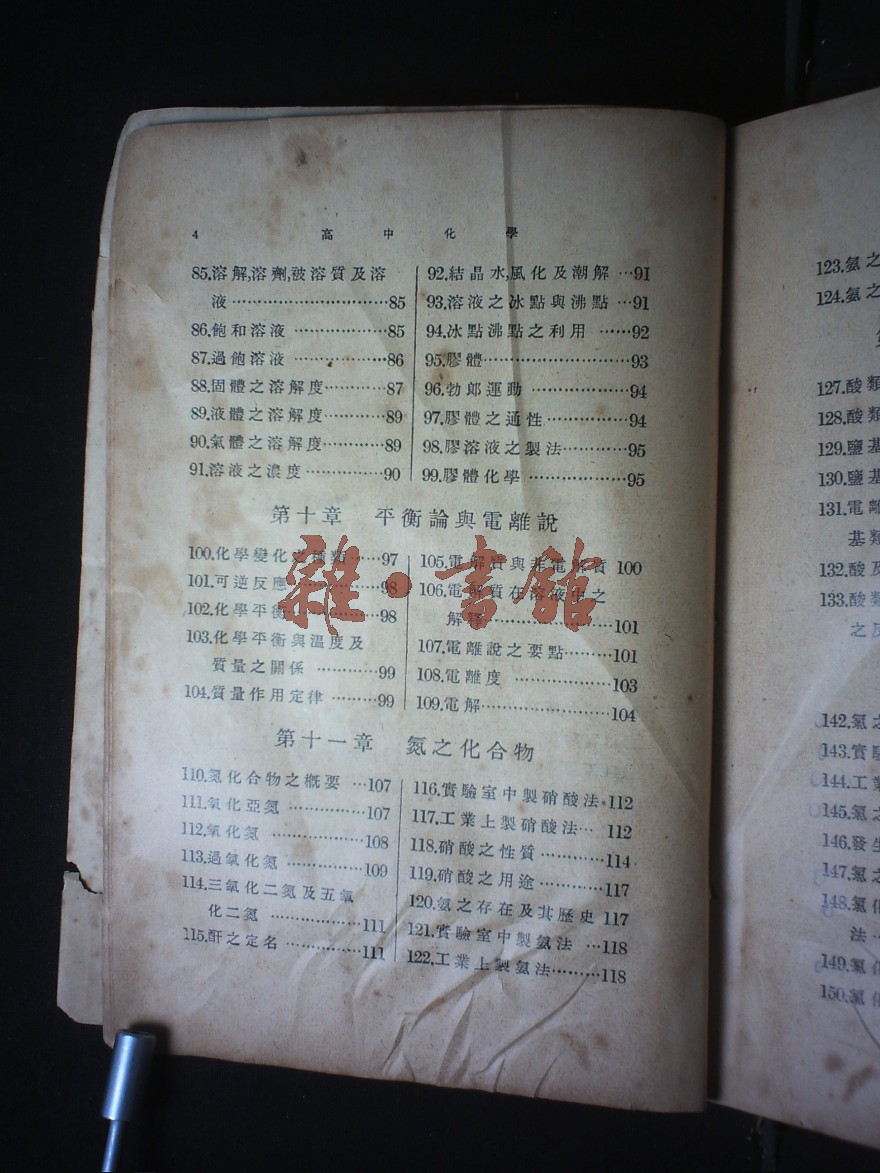 4 高中化學
85.溶解,溶劑,被溶質及溶
液…………………………85
86.飽和溶液………………85
87.過飽溶液………………86
88.固體之溶解度…………87
89.液體之溶解度…………89
90.氣體之溶解度…………89
91.溶液之濃度……………90
92.結晶水,風化及潮解…91
93.溶液之冰點與沸點…91
94.冰點沸點之利用……92
95.膠體……………………93
96.勃郎運動………………94
97.膠體之通性……………94
98.膠溶液之製法…………95
99.膠體化學………………95
第十章 平衡論與電離說
100.化學變化之種類……97
101.可逆反應……………98
102.化學平衡……………98
103.化學平衡與溫度及
質量之關係…………99
104.質量作用定律………99
105.電解質與非電解質 100
106.電解質在溶液中之
解釋…………………101
107.電離說之要點………101
108.電離度………………103
109.電解…………………104
第十一章 氮之化合物
110.氮化合物之概要…107
111.氧化亞氮……………107
112.氧化氮………………108
113.過氧化氮……………109
114.三氧化二氮及五氧
化二氮………………111
115.酐之定名……………111
116.實驗室中製硝酸法·112
117.工業上製硝酸法… 112
118.硝酸之性質…………114
119.硝酸之用途…………117
120.氨之存在及其歷史 117
121.實驗室中製氨法…118
122.工業上製氨法………118
123.氨之
124.氨之
127.酸類
128.酸類
129.鹽基
130.鹽基
131.電離
基類
132.酸及
133.酸類
之反
142.氯之
143.實驗
144.工業
145.氯之
146.發生
147.氯之
148.氯化
法…
149.氯化
150.氯化
雜·書館